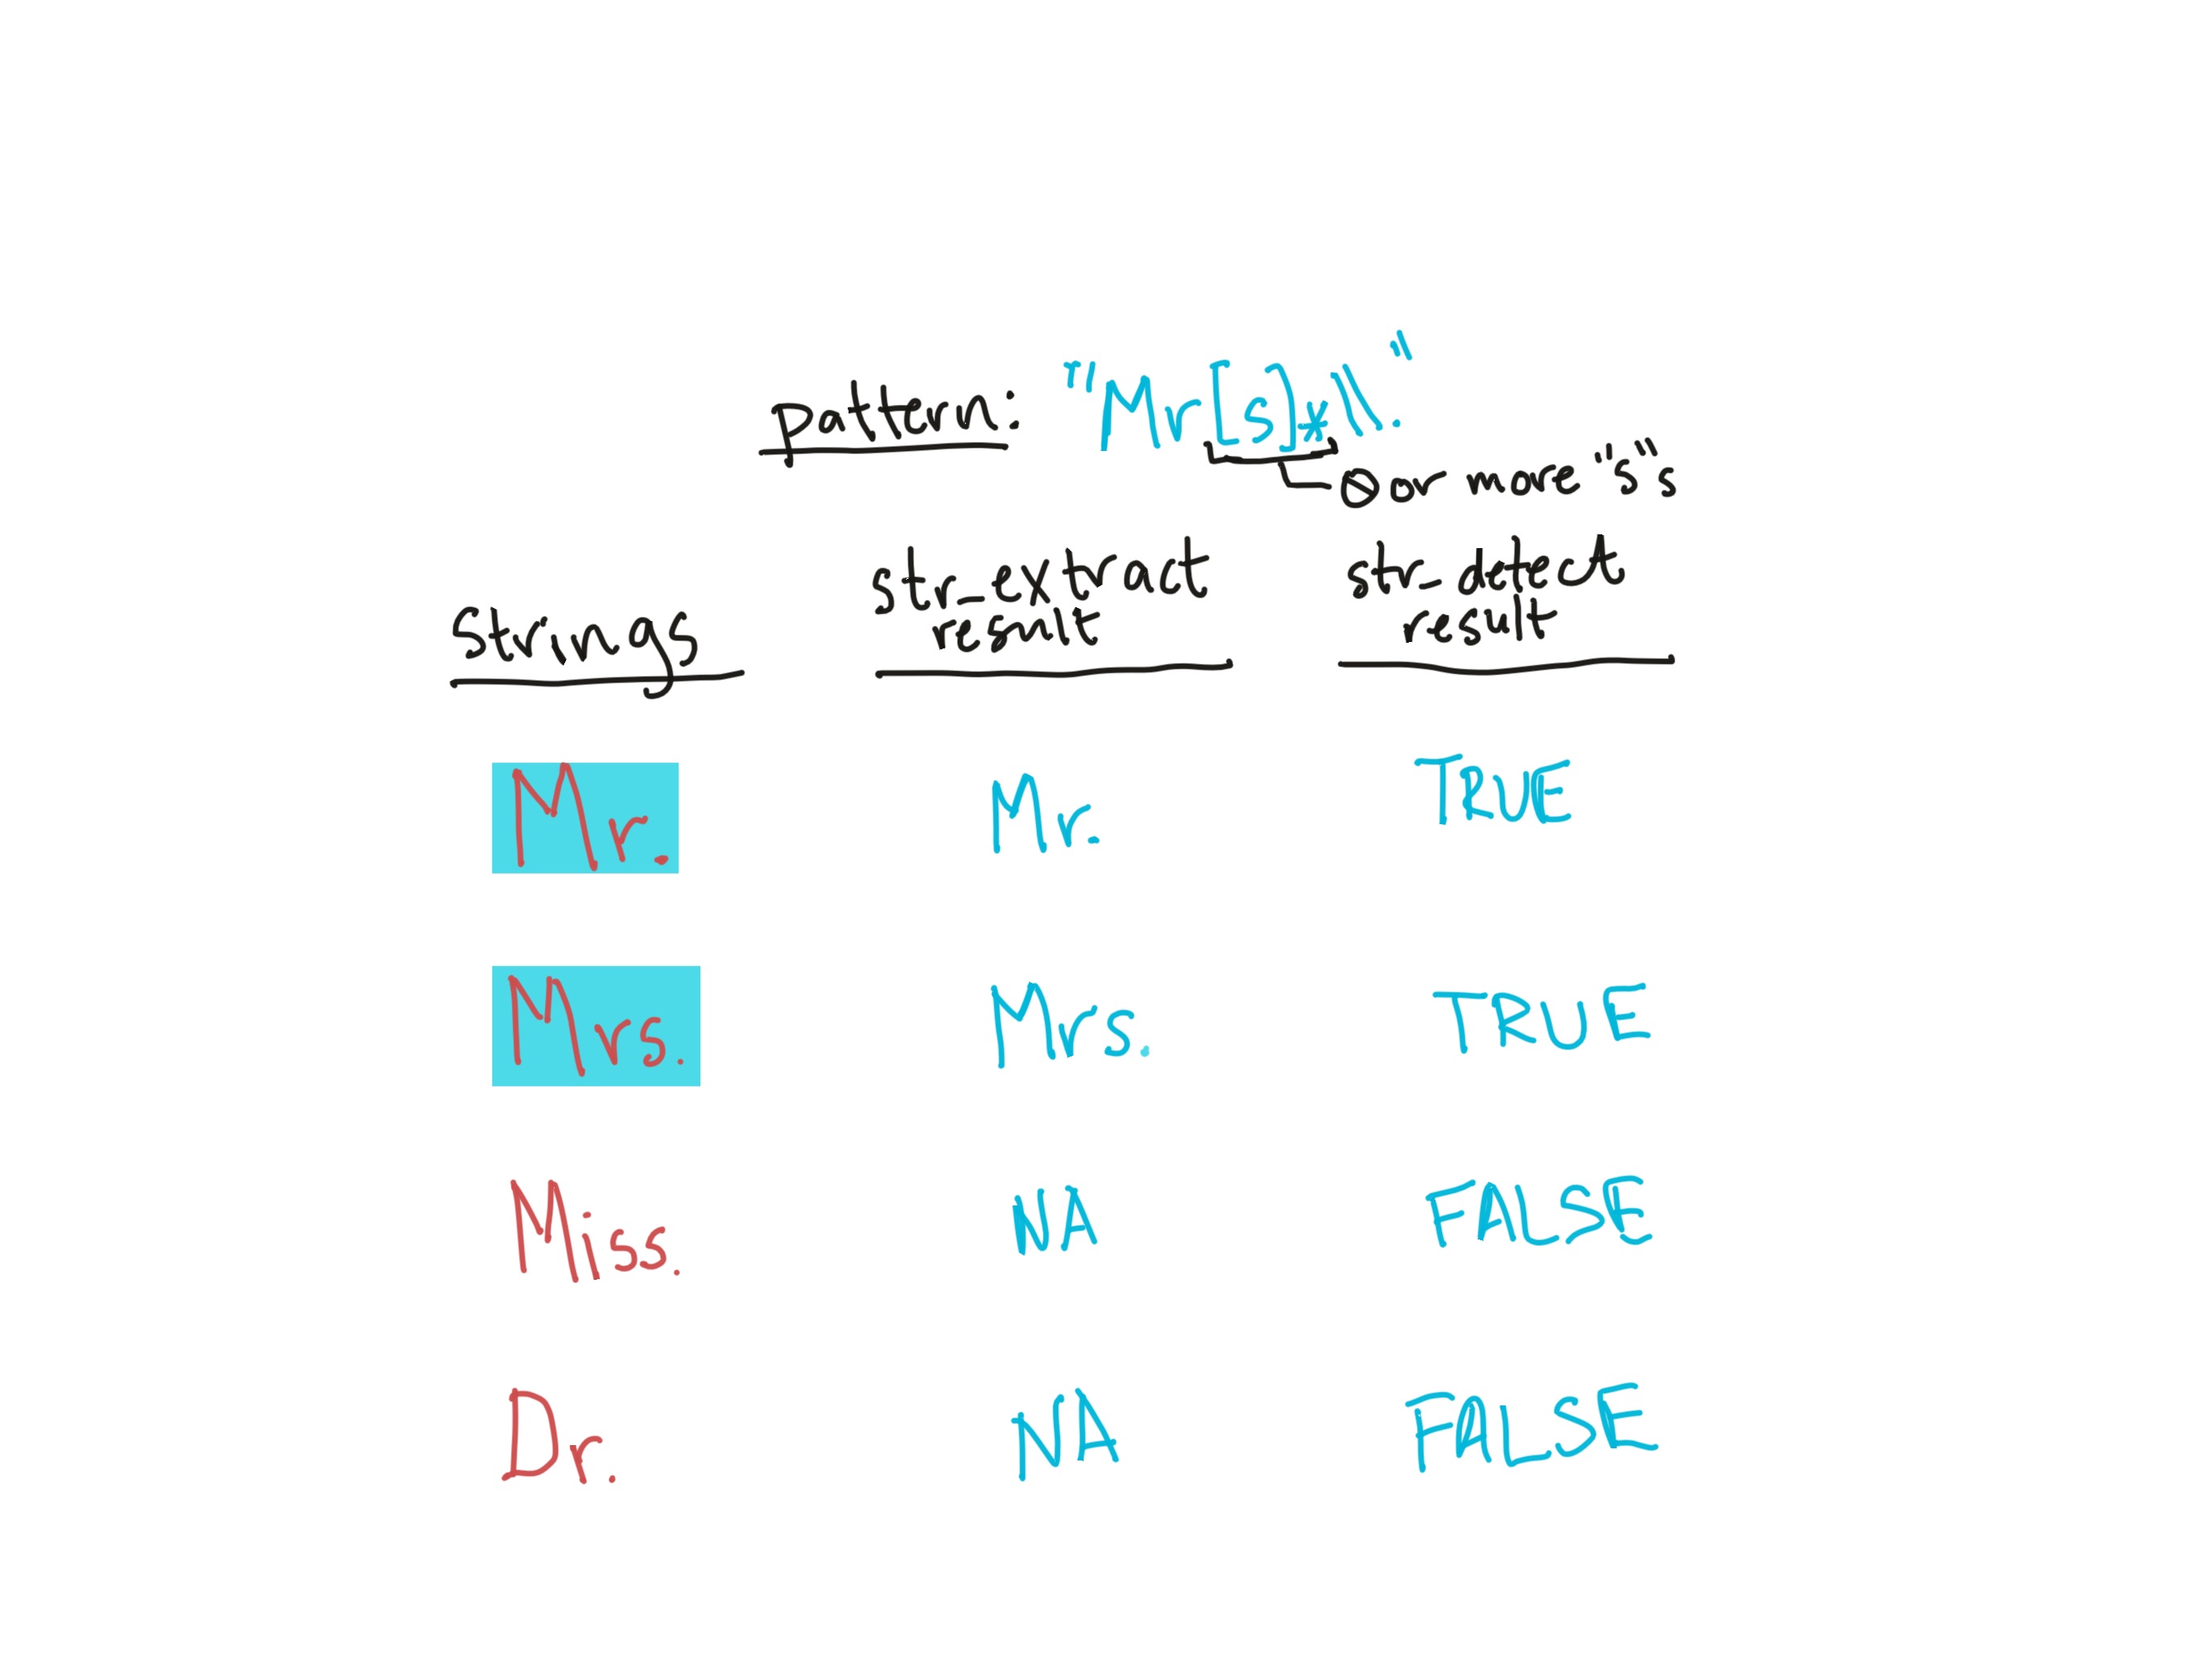 pattern: "Mr[s]*\\."
0 or more "s"s
strings
str_extract
result
str_detect
result
Mr. Mr. TRUE
Mrs. Mrs. TRUE
Miss. NA FALSE
Dr. NA FALSE